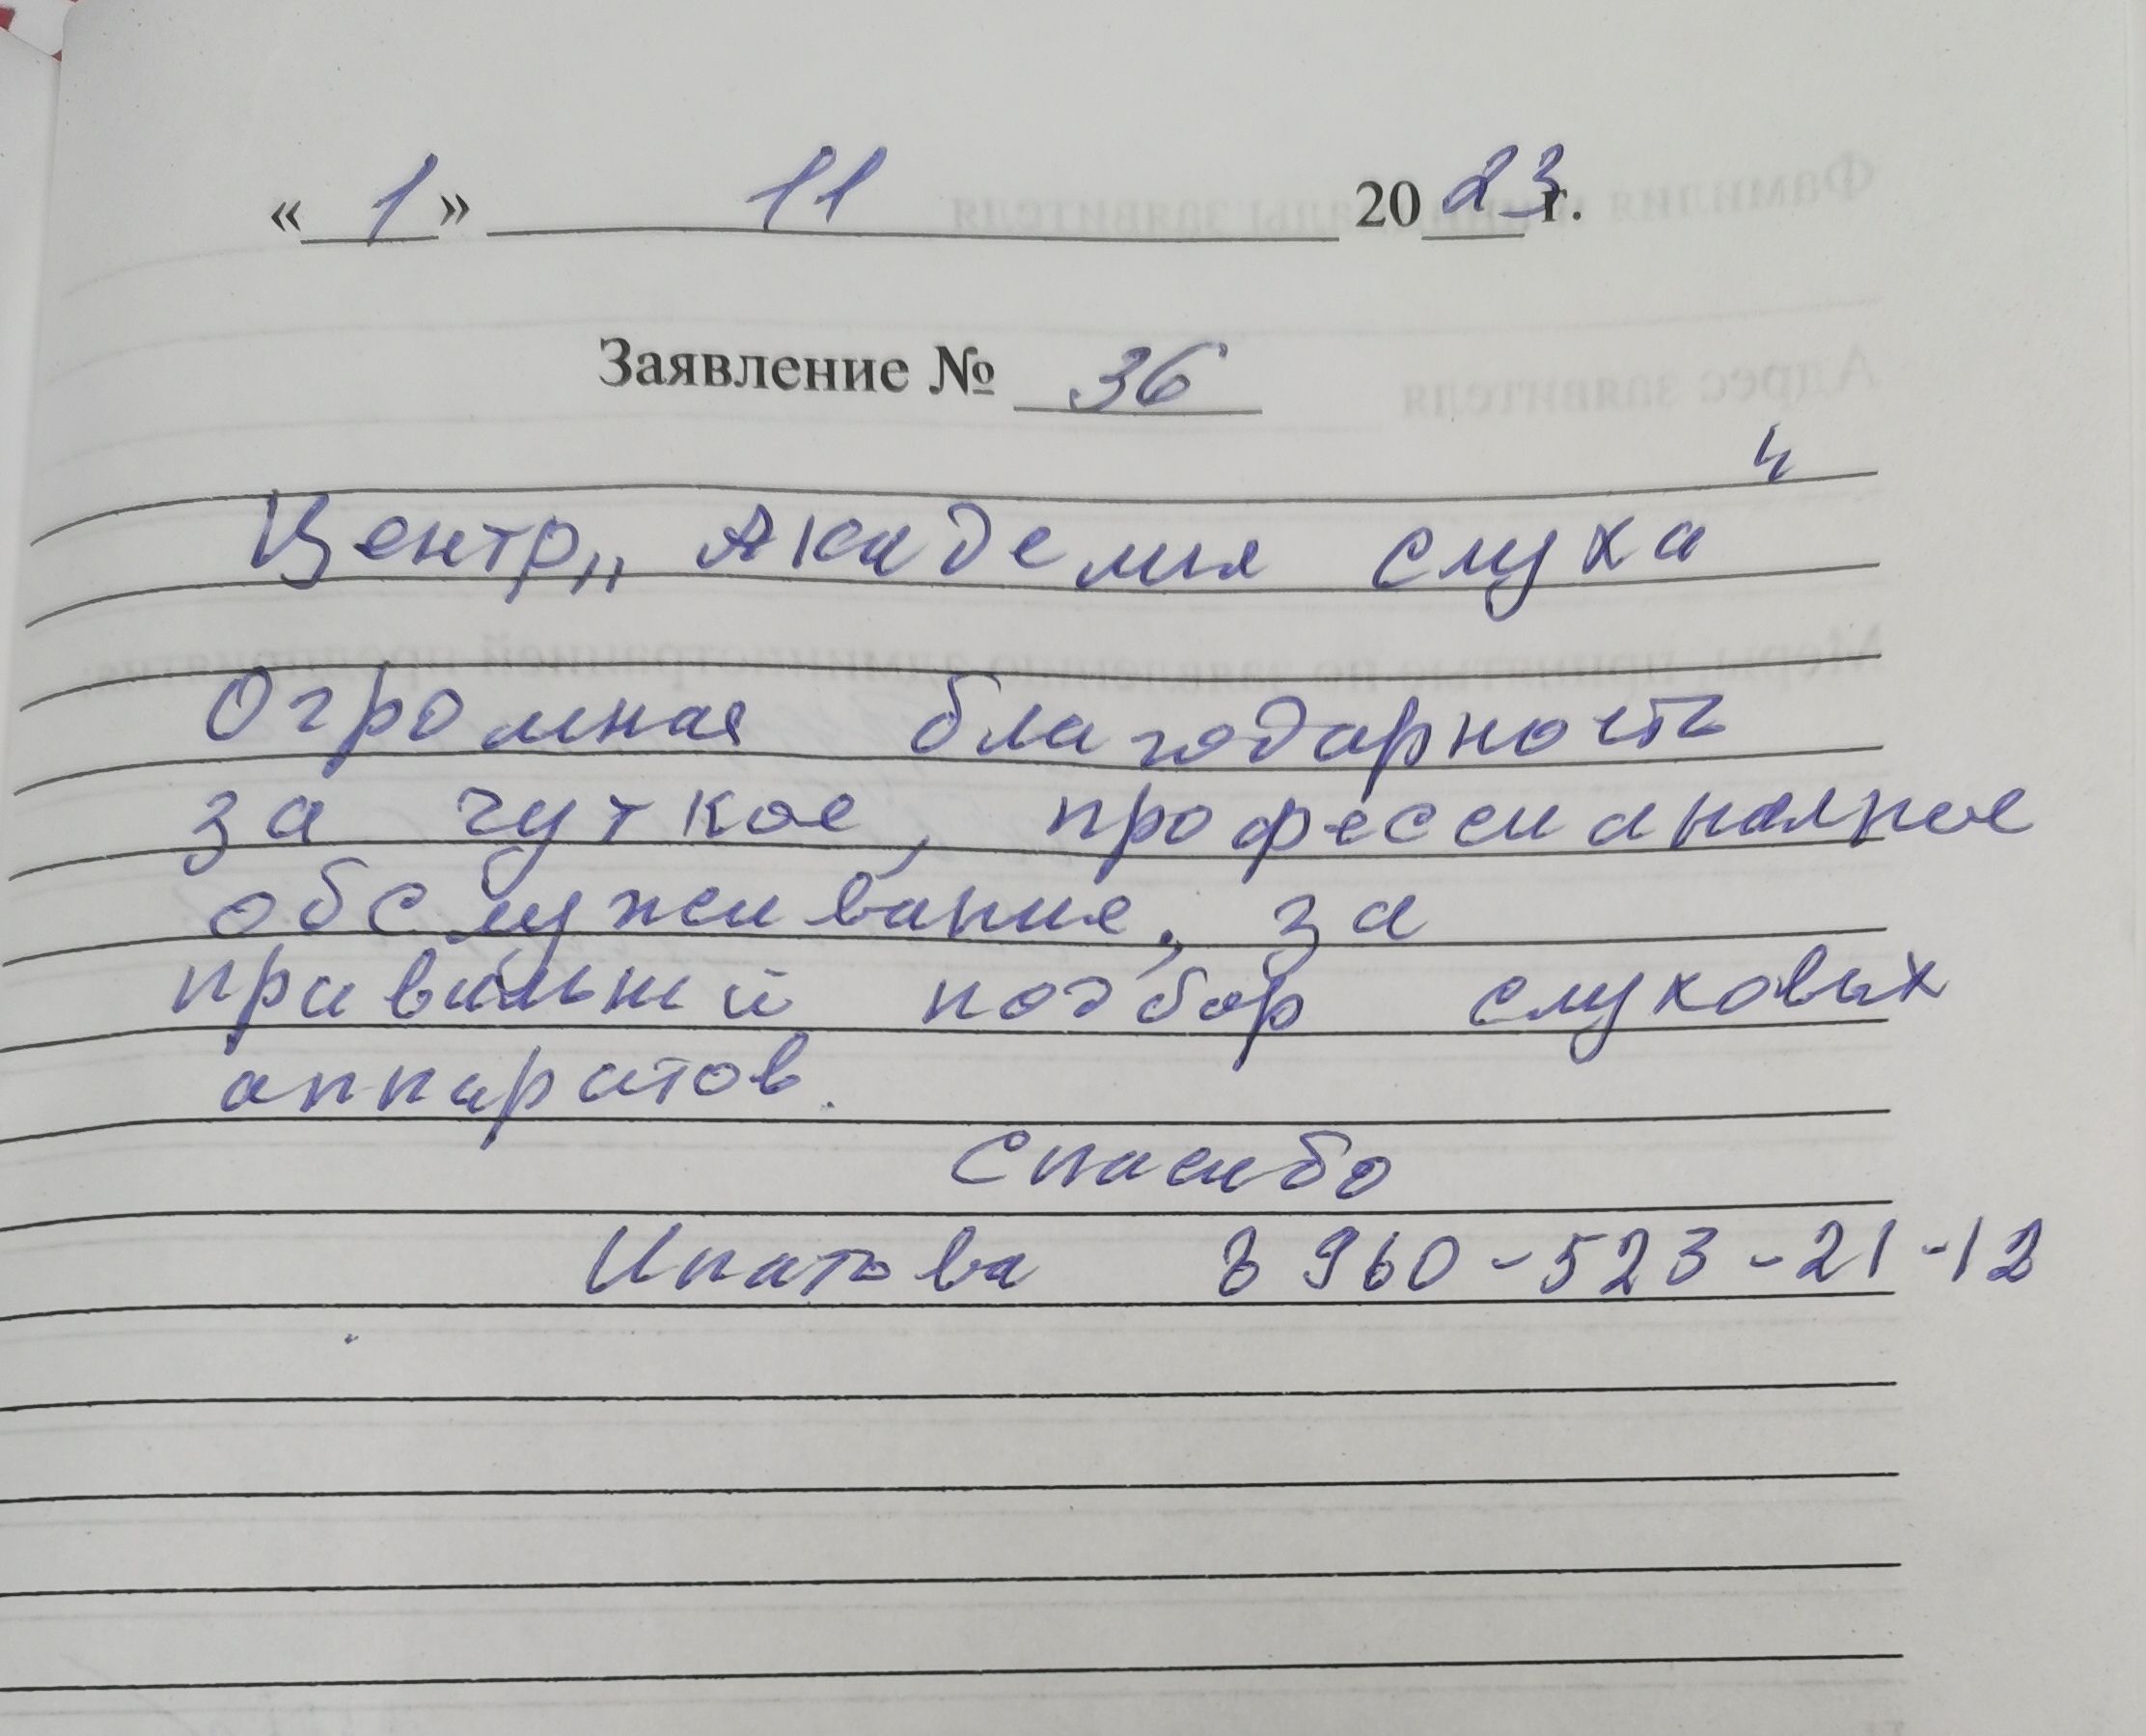 « 1 » 11 2023г.
Заявление № 36
Центр „ Академия слуха "
Огромная благодарность
за чуткое, профессианалное
обслуживание, за
правильний подбор слуховых
аппаратов.
Спасибо
Ипатова 8 960-523-21-12